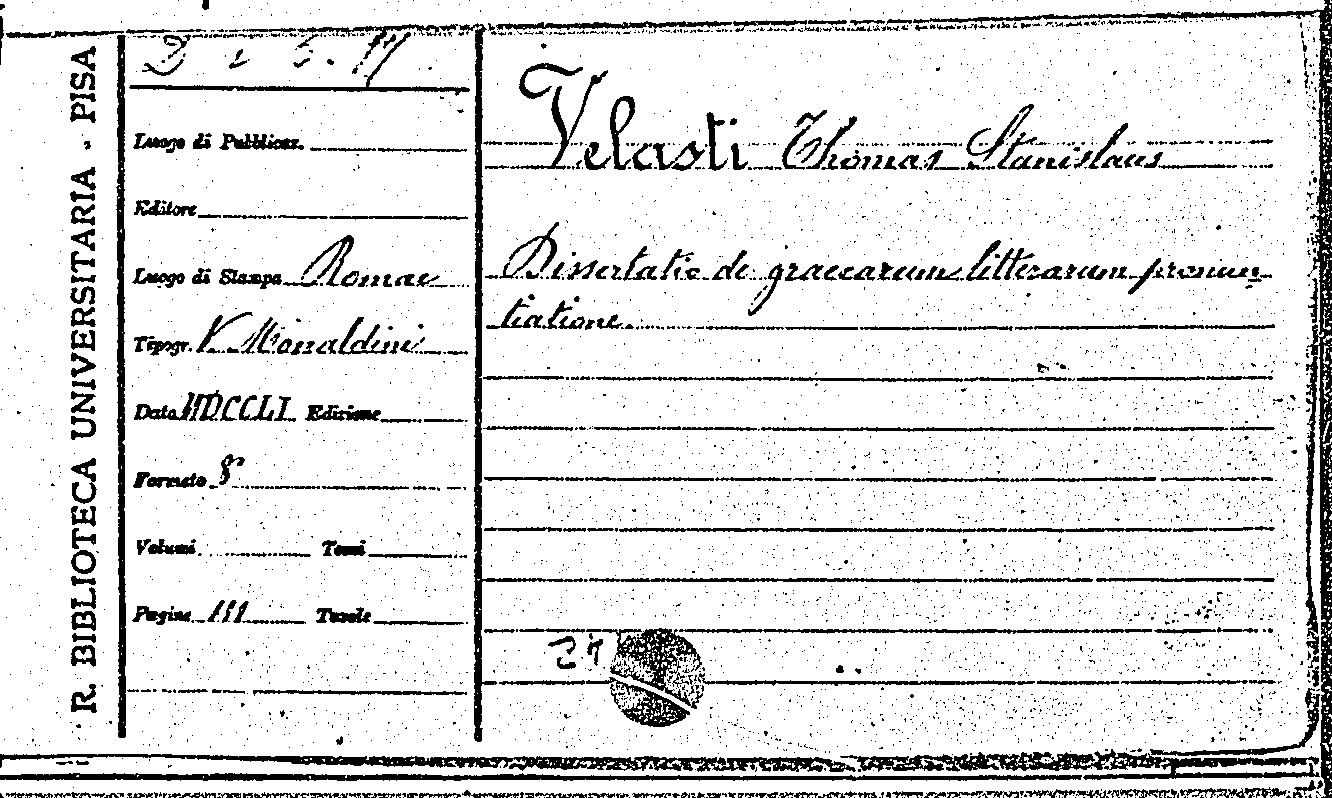 R. BIBLIOTECA UNIVERSITARIA . PISA
Luogo di Pubblicaz.
Editore
Luogo di Stampa Romae
Tipogr. V. Monaldini
Data MDCCLI Edizione
Formato 8°
Volumi Tomi
Pagine 111 Tavole
Velasti Thomas Stanislaus
Dissertatio de graecarum litterarum pronun-
tiatione.